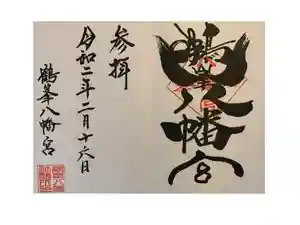 鶴峯八幡宮
参拝
令和二年二月十六日
鶴峯八幡宮